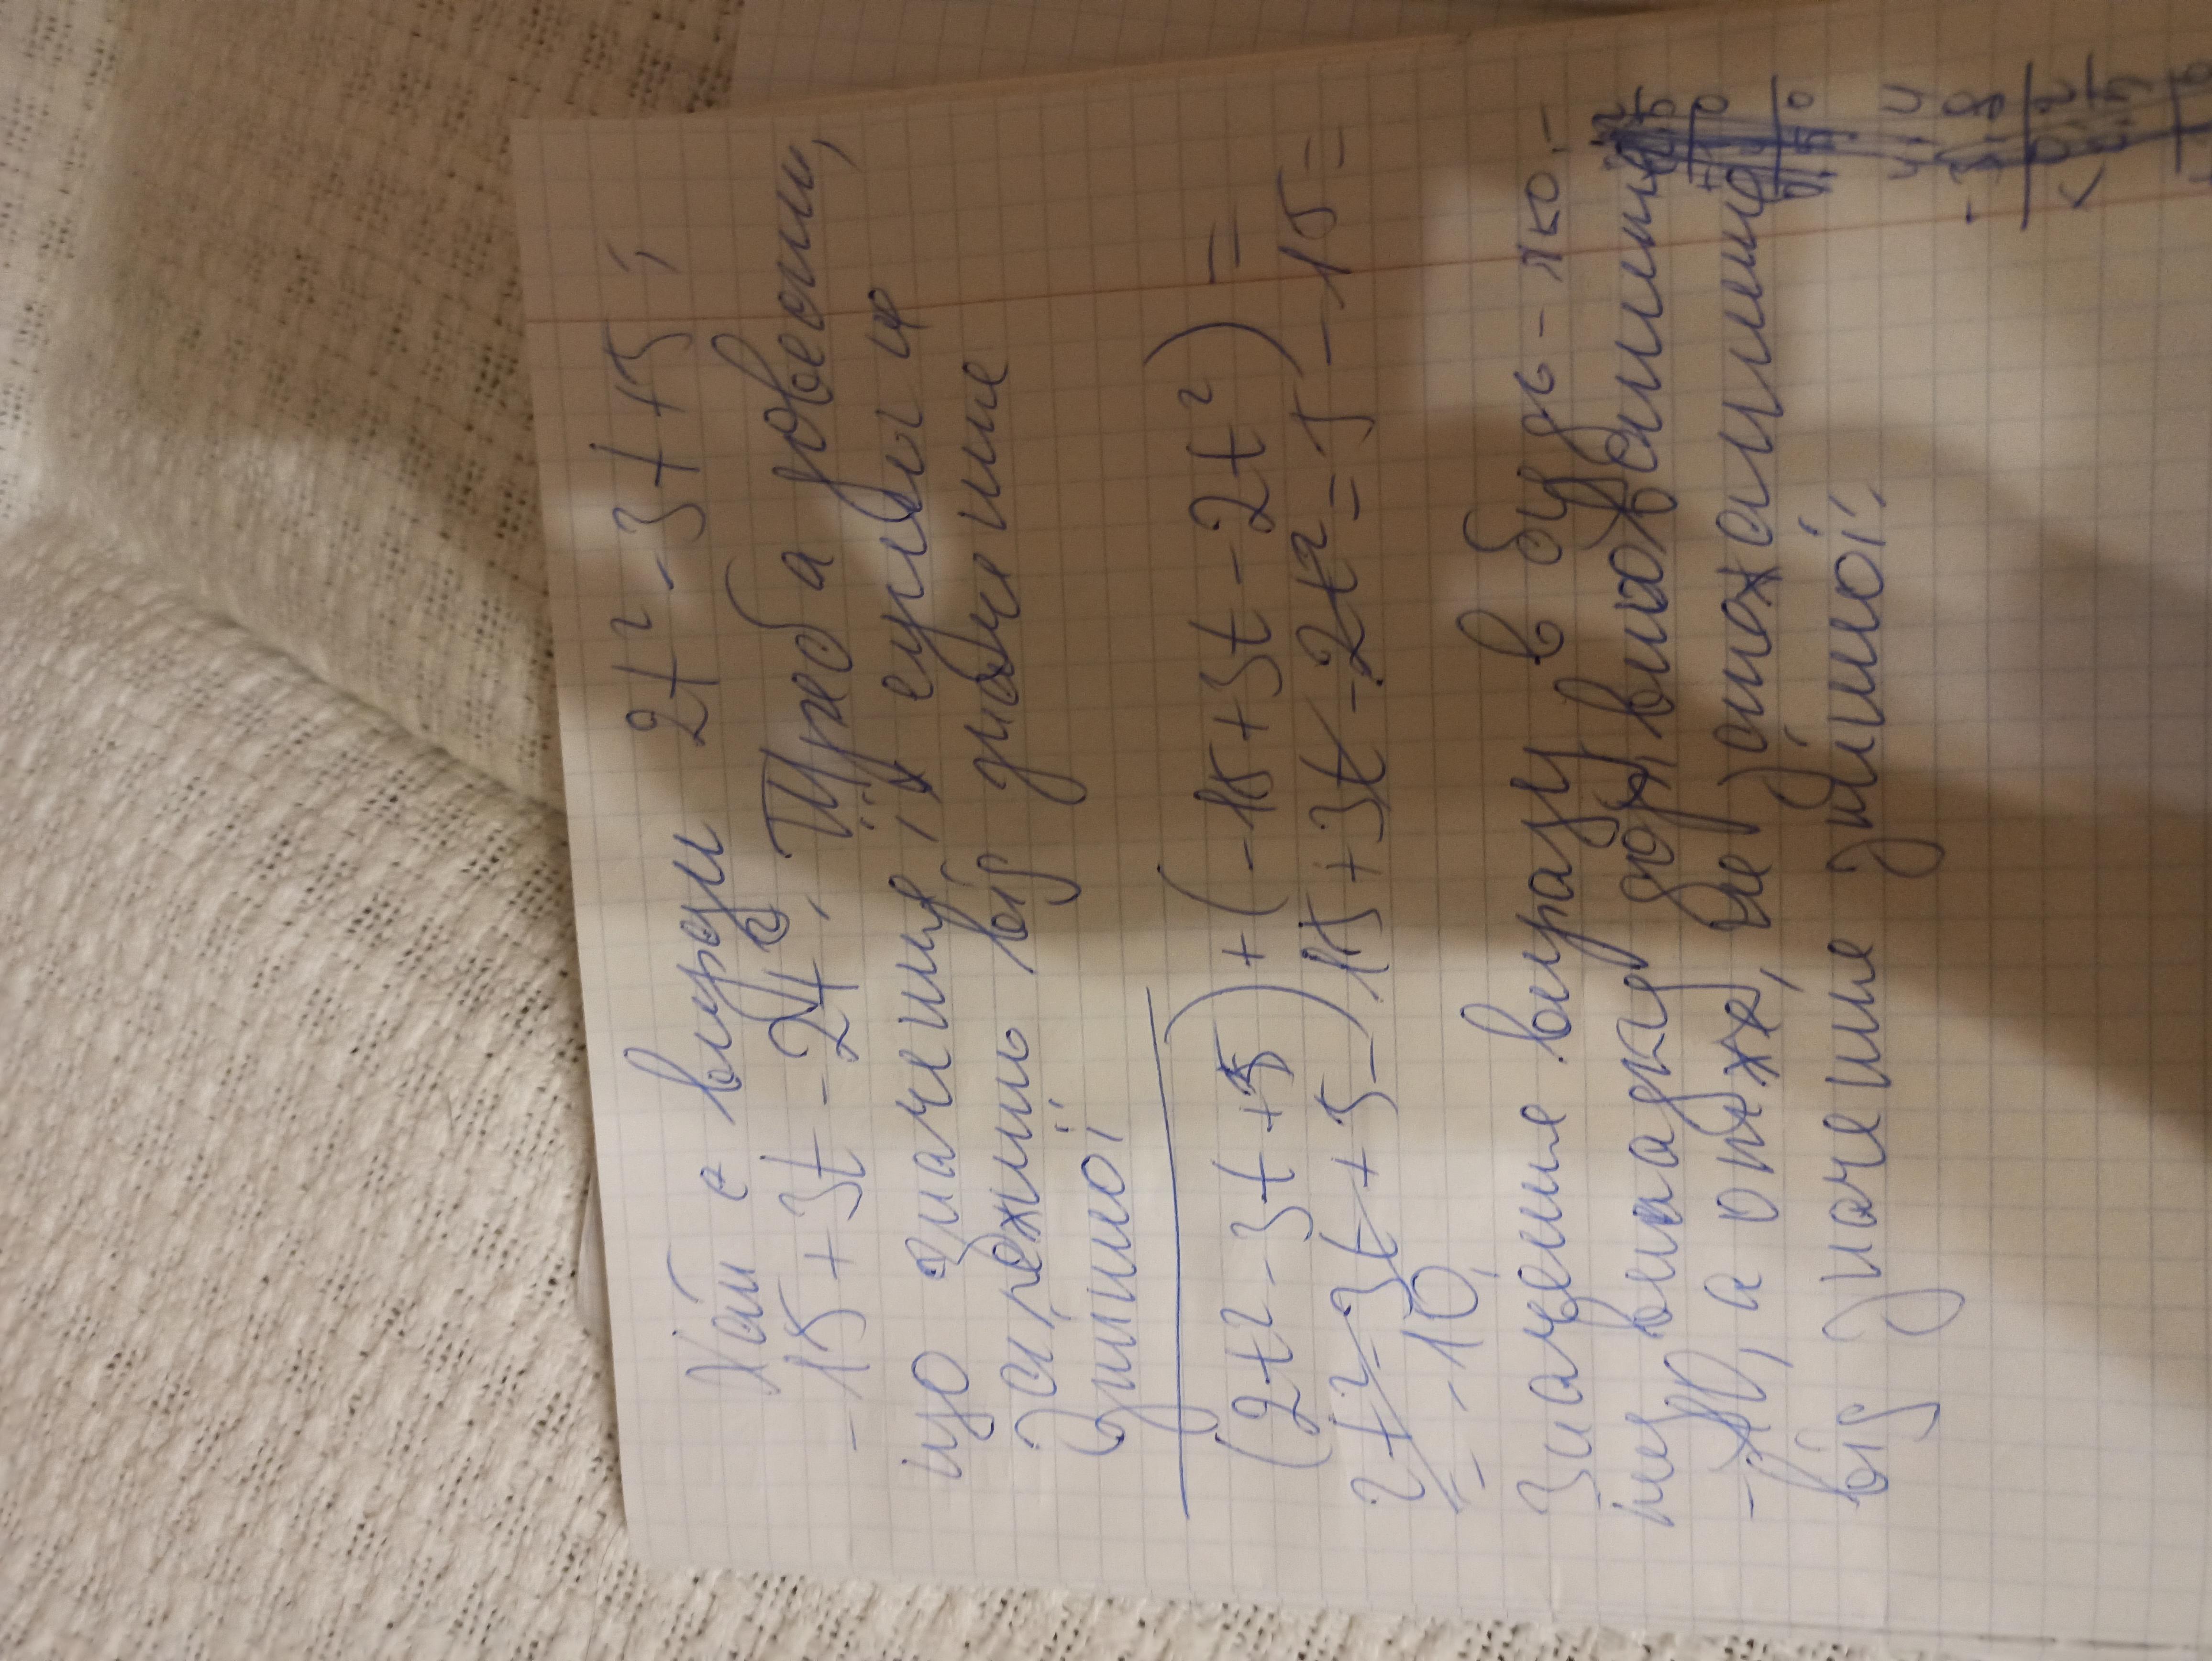 Хай є вирази 2t² - 3t + 5 і
- 15 + 3t - 2t². Треба довести,
що значення їх суми не
залежить від значення
змінної
(2t² - 3t + 5) + (-15 + 3t - 2t²) =
2t² - 3t + 5 - 15 + 3t - 2t² = 5 - 15 =
= - 10,
Значення виразу в будь-яко-
му випадку дорівнюватиме
-10, а отже, не залежатиме
від значення змінної.
4,4
- 3,8